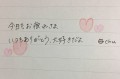 今日もお疲れさま
いつもありがとう。大好きだよ